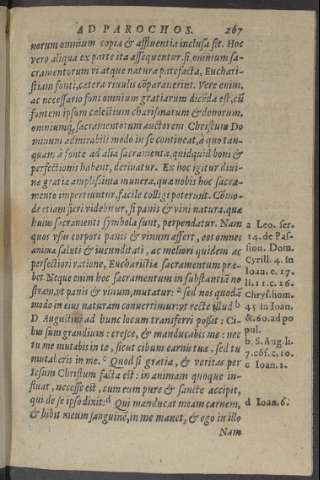 AD PAROCHOS. 267
norum omnium copia & affluentia inclusa sit. Hoc
vero aliqua ex parte ita assequentur. si omnium sa-
cramentorum vi atque natura patefacta, Euchari-
stiam fonti, cætera riuulis cōparauerint. Vere enim,
ac necessario fons omnium gratiarum dicēda est, cū
fontem ipsum celestium charismatum & donorum,
omniumq; sacramētorum auctorem Christum Do
minum admirabili modo in se contineat, a quo tan-
quam à fonte ad alia sacramenta, quidquid boni &
perfectionis habent, deriuatur. Ex hoc igitur diui-
ne gratiæ amplissima munera, quæ nobis hoc sacra-
mento impertiuntur, facile colligi poterunt. Cōmo-
de etiam fieri videbitur, si panis & vini natura, quæ
huius sacramenti symbola sunt, perpendatur. Nam
quos vsus corpori panis & vinum affert, eos omnes
animæ saluti & iucunditati, ac meliori quidem ac
perfectiori ratione, Eucharistiæ sacramentum præ-
bet Neque enim hoc sacramentum in substantiā no
stram, vt panis & vinum, mutatur: ª sed nos quodā
modo in eius naturam conuertimur: vt recte illud b
D Augustini ad hunc locum transferri possit: Ci-
bus sum grandium: cresce, & manducabis me: nec
tu me mutabis in te, sicut cibum carnis tuæ, sed tu
mutaberis in me. c Quod si gratia, & veritas per
Iesum Christum facta est: in animam quoque in-
fluat, necesse est, cum eum pure & sancte accipit,
qui de se ipso dixit: d Qui manducat meam carnem,
& bibit meum sanguinē, in me manet, & ego in illo
Nam
a Leo. ser.
14. de Pas-
sion. Dom.
Cyrill. 4. in
Ioan. c. 17.
li. 11. c. 26.
Chrys. hom.
45 in Ioan.
& 60. ad po
pul.
b. S. Aug. li.
7. cōf. c. 10.
c Ioan. 1.
d Ioan. 6.